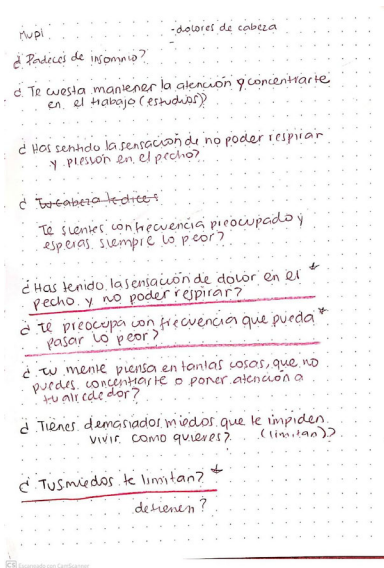 Mupi -dolores de cabeza
¿Padeces de insomnio?
¿Te cuesta mantener la atención y concentrarte
en el trabajo (estudios)?
¿Has sentido la sensación de no poder respirar
y presión en el pecho?
¿Tu cabeza te dice:
Te sientes con frecuencia preocupado y
esperas siempre lo peor?
¿Has tenido la sensación de dolor en el *
pecho y no poder respirar?
¿Te preocupa con frecuencia que pueda *
pasar lo peor?
¿Tu mente piensa en tantas cosas, que no
puedes concentrarte o poner atención a
tu alrededor?
¿Tienes demasiados miedos que te impiden
vivir como quieres? (limitan)?
¿Tus miedos te limitan? *
detienen?
CS Escaneado con CamScanner